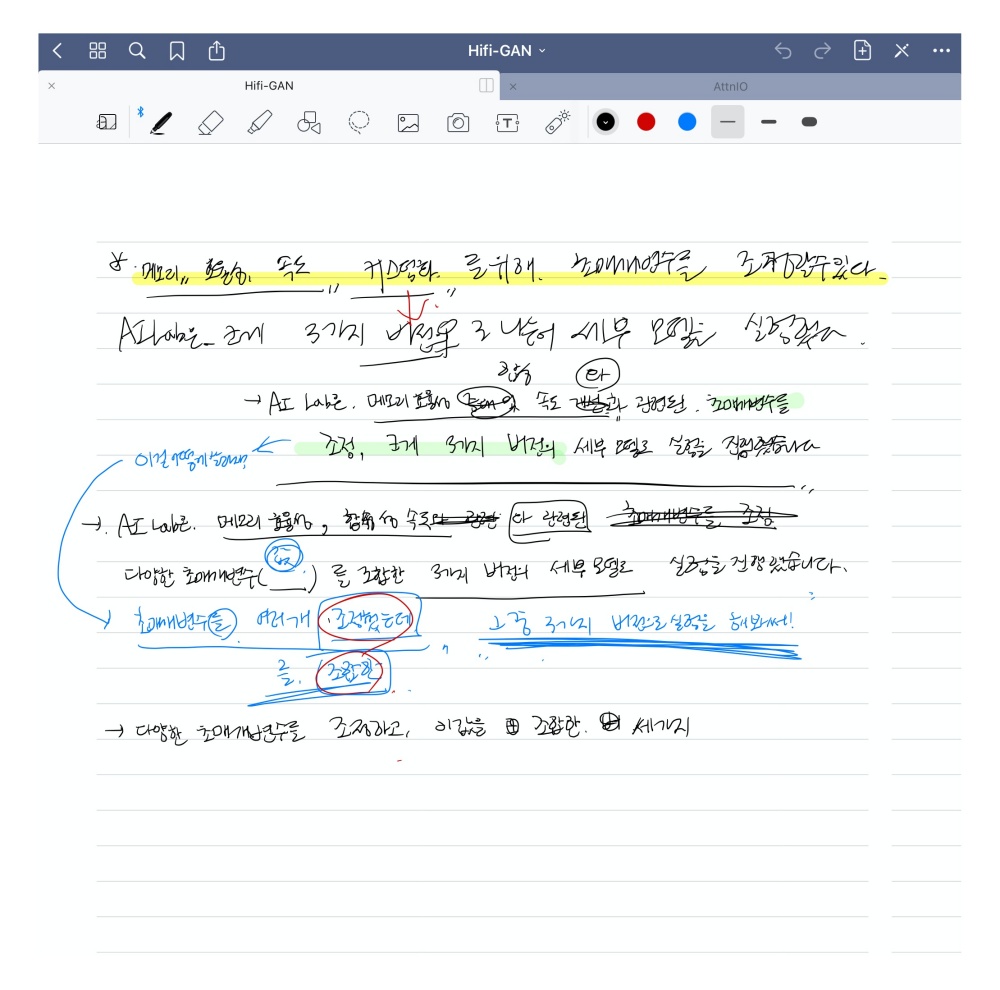 Hifi-GAN
Hifi-GAN
AttnIO
메모리, 효율성, 속도 커스텀화를 위해. 초매개변수를 조정할수있다.
AI Lab은 크게 3가지 버전으로 나눠 세부 모델을 실험했다.
합성
와
→ AI Lab은. 메모리 효율성 속도 관련된. 초매개변수를
조정, 크게 3가지 버전의 세부 모델로 실험을 진행했습니다
이걸 어떻게
→ AI Lab은. 메모리 효율성, 합성 속도 와 관련된 초매개변수를 조정
값
다양한 초매개변수( ) 를 조합한 3가지 버전의 세부 모델로 실험을 진행했습니다.
초매개변수를 여러개 조정했는데 그 중 3가지 버전으로 실험을 해봤써!
를. 조합한
→ 다양한 초매개변수를 조정하고, 이 값을 조합한. 세가지